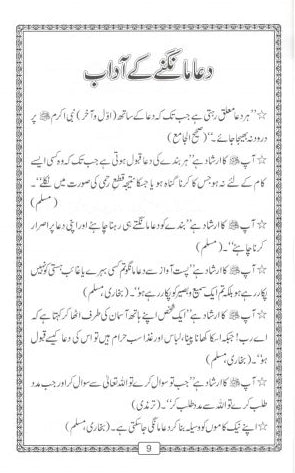 دعا مانگنے کے آداب
☆ ”ہر دعا معلق رہتی ہے جب تک کہ دعا کے ساتھ (اوّل و آخر) نبی اکرم ﷺ پر
درود نہ بھیجا جائے۔“ (صحیح الجامع)
☆ آپ ﷺ کا ارشاد ہے ”ہر بندے کی دعا قبول ہوتی ہے جب تک کہ وہ کسی ایسے
کام کے لئے نہ ہو جس کا کرنا گناہ ہو یا جسکا نتیجہ قطع رحمی کی صورت میں نکلے“۔
(مسلم)
☆ آپ ﷺ کا ارشاد ہے ”بندے کو دعا مانگتے ہی رہنا چاہئے اور اپنی دعا پر اصرار
کرنا چاہئے“۔ (مسلم)
☆ آپ ﷺ کا ارشاد ہے ”پست آواز سے دعا مانگو تم کسی بہرے یا غائب ہستی کو نہیں
پکار رہے ہو بلکہ تم ایک سمیع و بصیر کو پکار رہے ہو“۔ (بخاری، مسلم)
☆ آپ ﷺ کا ارشاد ہے ”ایک شخص اپنے ہاتھ آسمان کی طرف اٹھا کر کہتا ہے کہ
اے رب! جبکہ اسکا کھانا پینا، لباس اور غذا سب حرام ہیں تو اس کی دعا کیسے قبول
ہو“۔ (بخاری، مسلم)
☆ آپ ﷺ کا ارشاد ہے ”جب تو سوال کرے تو اللہ تعالٰی سے سوال کر اور جب مدد
طلب کرے تو اللہ تعالٰی سے مدد طلب کر“۔ (ترمذی)
☆ اپنے نیک کاموں کو وسیلہ بنا کر دعا مانگی جا سکتی ہے۔ (بخاری، مسلم)
9